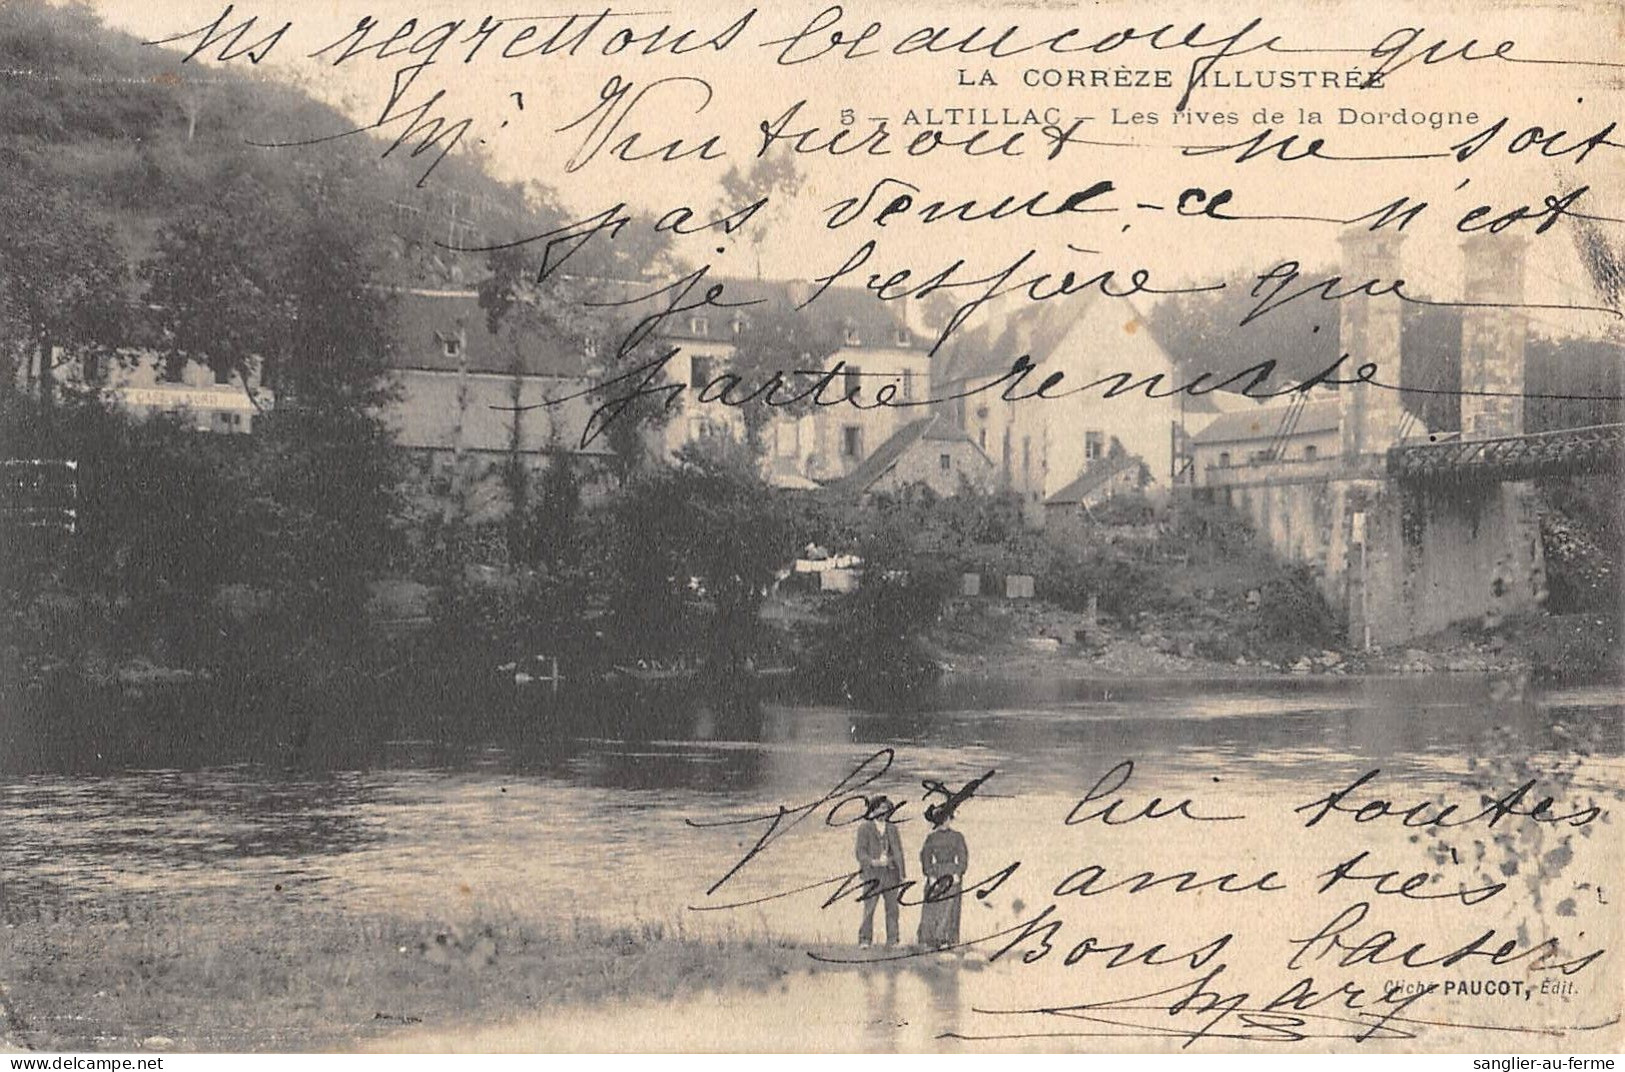 Ns regrettons beaucoup que
LA CORRÈZE ILLUSTRÉE
5 - ALTILLAC - Les rives de la Dordogne
Mr Vinturout ne soit
pas venue, ce n'est
je l'espère que
partie remise
CAFÉ DU NORD
fait lui toutes
mes amitiés
Bons baisers
Mary
Cliché PAUCOT, Édit.
sanglier-au-ferme